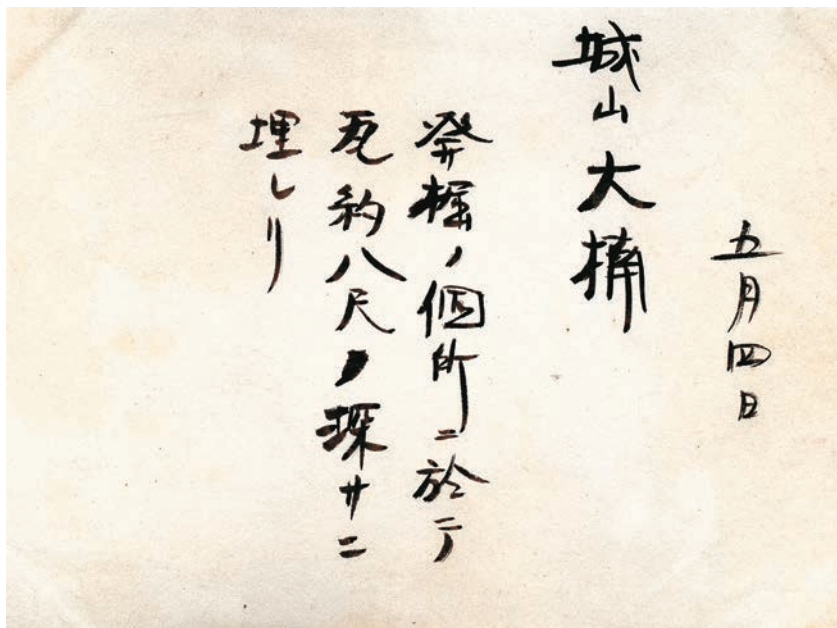 五月四日
城山大楠
発掘ノ個所ニ於テ
瓦約八尺ノ深サニ
埋レリ